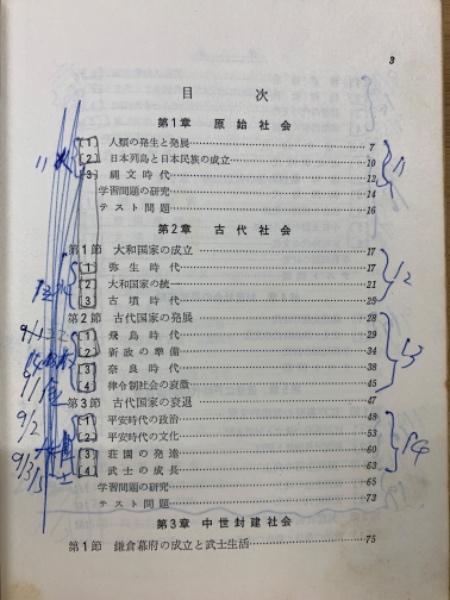 3
目 次
第1章 原始社会
〔1〕 人類の発生と発展 7
〔2〕 日本列島と日本民族の成立 10
〔3〕 縄文時代 13
学習問題の研究 14
テスト問題 16
第2章 古代社会
第1節 大和国家の成立 17
〔1〕 弥生時代 17
〔2〕 大和国家の統一 21
〔3〕 古墳時代 25
第2節 古代国家の発展 28
〔1〕 飛鳥時代 29
〔2〕 新政の準備 34
〔3〕 奈良時代 38
〔4〕 律令制社会の衰微 45
第3節 古代国家の衰退 47
〔1〕 平安時代の政治 48
〔2〕 平安時代の文化 53
〔3〕 荘園の発達 60
〔4〕 武士の成長 63
学習問題の研究 65
テスト問題 73
第3章 中世封建社会
第1節 鎌倉幕府の成立と武士生活 75
11
12
13
14
9/2